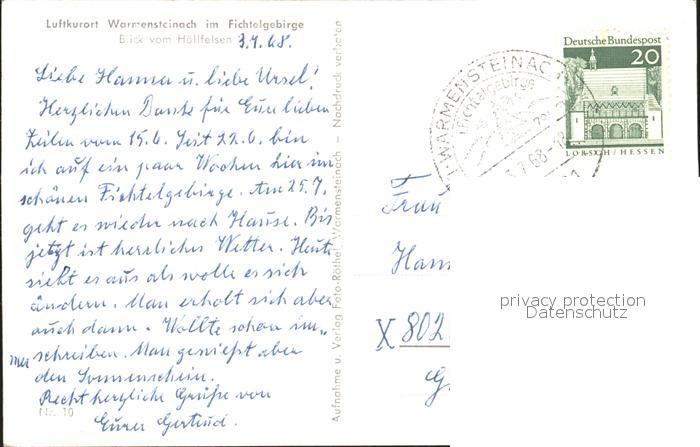 Luftkurort Warmensteinach im Fichtelgebirge
Blick vom Höllfelsen
3.7.68.
Liebe Hanna u. liebe Ursel!
Herzlichen Dank für Eure lieben
Zeilen vom 15.6. Seit 22.6. bin
ich auf ein paar Wochen hier im
schönen Fichtelgebirge. Am 25.7.
geht es wieder nach Hause. Bis
jetzt ist herrliches Wetter. Heute
sieht es aus als wolle es sich
ändern. Man erholt sich aber
auch dann. Wollte schon im„
mer schreiben. Man genießt aber
den Sonnenschein.
Recht herzliche Grüße von
Eurer Gertrud.
Nr. 10
Aufnahme u. Verlag Foto-Röthel, Warmensteinach — Nachdruck verboten
WARMENSTEINACH
Fichtelgebirge
7.68
Deutsche Bundespost
20
LORSCH / HESSEN
Frau
Han
X 802
privacy protection
Datenschutz